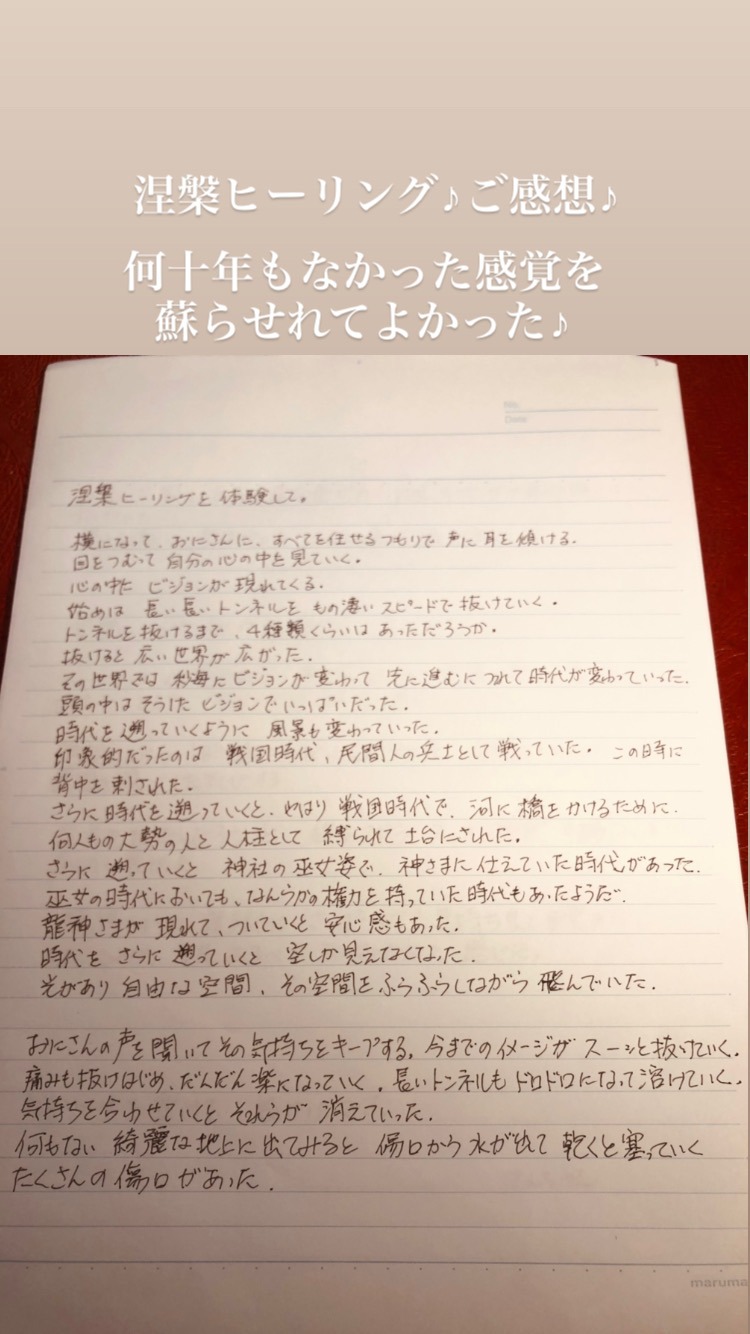 涅槃ヒーリング♪ご感想♪
何十年もなかった感覚を
蘇らせれてよかった♪
No.
Date
涅槃ヒーリングを体験して。
横になって、おにさんに、すべてを任せるつもりで声に耳を傾ける.
目をつむって自分の心の中を見ていく.
心の中に ビジョンが現れてくる.
始めは 長い長いトンネルを もの凄いスピードで抜けていく.
トンネルを抜けるまで、4種類くらいは あっただろうか.
抜けると 広い世界が広がった.
その世界では 秒毎にビジョンが変わって 先に進むにつれて時代が変わっていった.
頭の中は そうした ビジョンでいっぱいだった.
時代を遡っていくように 風景も変わっていった.
印象的だったのは 戦国時代、民間人の兵士として戦っていた. この時に
背中を刺された.
さらに時代を遡っていくと、やはり 戦国時代で、河に橋をかけるために.
何人もの大勢の人と 人柱として 縛られて土台にされた.
さらに 遡っていくと 神社の巫女姿で、神さまに仕えていた時代があった.
巫女の時代においても、なんらかの権力を持っていた時代もあったようだ.
龍神さまが 現れて、ついていくと 安心感もあった.
時代を さらに 遡っていくと 空しか見えなくなった.
光があり 自由な空間、その空間を ふらふらしながら 飛んでいた.
おにさんの声を聞いてその気持ちをキープする. 今までのイメージが スーッと抜けていく.
痛みも抜けはじめ、だんだん楽になっていく. 長いトンネルもドロドロになって溶けていく.
気持ちを合わせていくと それらが 消えていった.
何もない 綺麗な地上に出てみると 傷口から水が出て 乾くと塞っていく
たくさんの傷口があった.
maruma